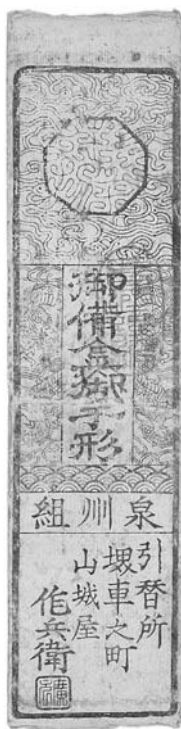 御備金御手形
泉州組
引替所
堺車之町
山城屋
作兵衛